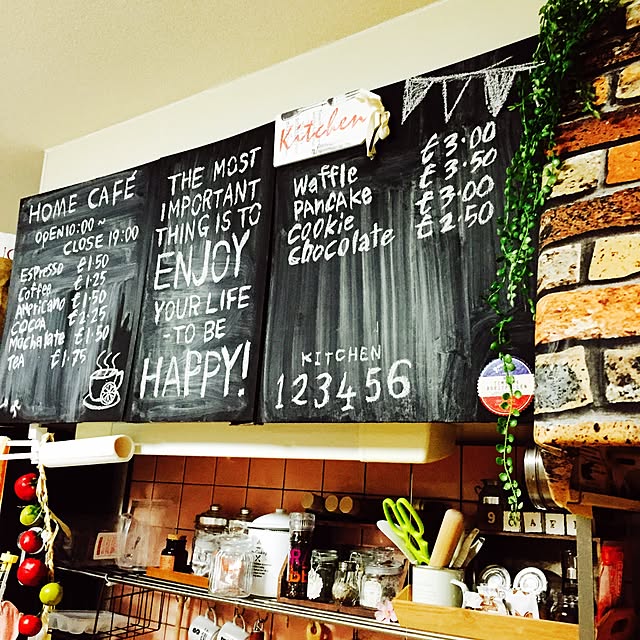 HOME CAFÉ
OPEN 10:00 ~
CLOSE 19:00
Espresso £1.50
Coffee £1.25
Americano £1.50
COCOA £2.25
Mochalate £1.50
TEA £1.75
THE MOST
IMPORTANT
THING IS TO
ENJOY
YOUR LIFE
-TO BE
HAPPY!
Kitchen
Waffle £3.00
PANCAKE £3.50
COOKIE £3.00
Chocolate £2.50
KITCHEN
123456
9 CAF